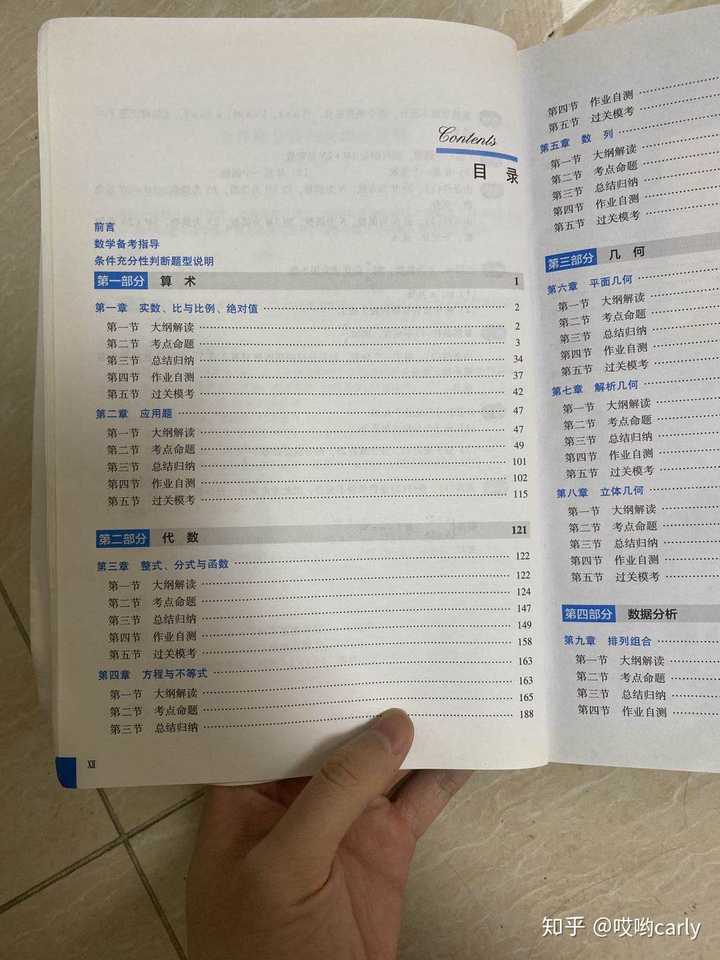 Contents
目 录
前言
数学备考指导
条件充分性判断题型说明
第一部分 算 术 1
第一章 实数、比与比例、绝对值 2
第一节 大纲解读 2
第二节 考点命题 3
第三节 总结归纳 34
第四节 作业自测 37
第五节 过关模考 42
第二章 应用题 47
第一节 大纲解读 47
第二节 考点命题 49
第三节 总结归纳 101
第四节 作业自测 102
第五节 过关模考 115
第二部分 代 数 121
第三章 整式、分式与函数 122
第一节 大纲解读 122
第二节 考点命题 124
第三节 总结归纳 147
第四节 作业自测 149
第五节 过关模考 158
第四章 方程与不等式 163
第一节 大纲解读 163
第二节 考点命题 165
第三节 总结归纳 188
XII
第四节 作业自测
第五节 过关模考
第五章 数 列
第一节 大纲解读
第二节 考点命题
第三节 总结归纳
第四节 作业自测
第五节 过关模考
第三部分 几 何
第六章 平面几何
第一节 大纲解读
第二节 考点命题
第三节 总结归纳
第四节 作业自测
第五节 过关模考
第七章 解析几何
第一节 大纲解读
第二节 考点命题
第三节 总结归纳
第四节 作业自测
第五节 过关模考
第八章 立体几何
第一节 大纲解读
第二节 考点命题
第三节 总结归纳
第四节 作业自测
第五节 过关模考
第四部分 数据分析
第九章 排列组合
第一节 大纲解读
第二节 考点命题
第三节 总结归纳
第四节 作业自测
知乎 @哎哟carly